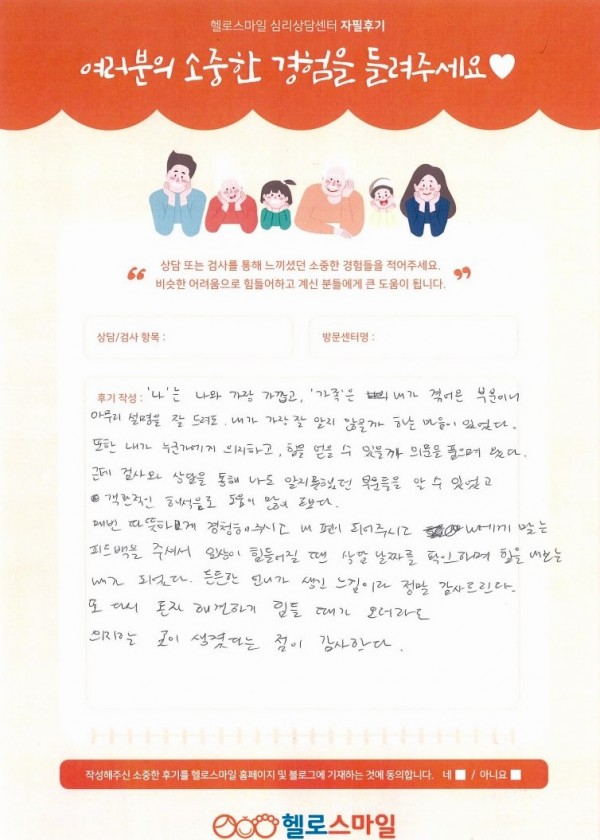 헬로스마일 심리상담센터 자필후기
여러분의 소중한 경험을 들려주세요♥
“ 상담 또는 검사를 통해 느끼셨던 소중한 경험들을 적어주세요.
비슷한 어려움으로 힘들어하고 계신 분들에게 큰 도움이 됩니다. ”
상담/검사 항목 :
방문센터명 :
후기 작성 : '나'는 나와 가장 가깝고, '가족'은 내가 겪어온 부분이니
아무리 설명을 잘 드려도, 내가 가장 잘 알지 않을까 하는 마음이 있었다.
또한 내가 누군가에게 의지하고, 힘을 얻을 수 있을까 의문을 품으며 왔다.
근데 검사와 상담을 통해 나도 알지못했던 부분들을 알 수 있었고
객관적인 해석으로 도움이 많이 되었다.
매번 따뜻하게 경청해주시고 내 편이 되어주시고 나에게 맞는
피드백을 주셔서 일상이 힘들어질 땐 상담 날짜를 확인하며 힘을 내는
내가 되었다. 든든한 언니가 생긴 느낌이라 정말 감사드린다.
또 다시 혼자 해결하기 힘들 때가 오더라도
의지하는 곳이 생겼다는 점이 감사하다.
작성해주신 소중한 후기를 헬로스마일 홈페이지 및 블로그에 기재하는 것에 동의합니다. 네 ■ / 아니요 ■
헬로스마일